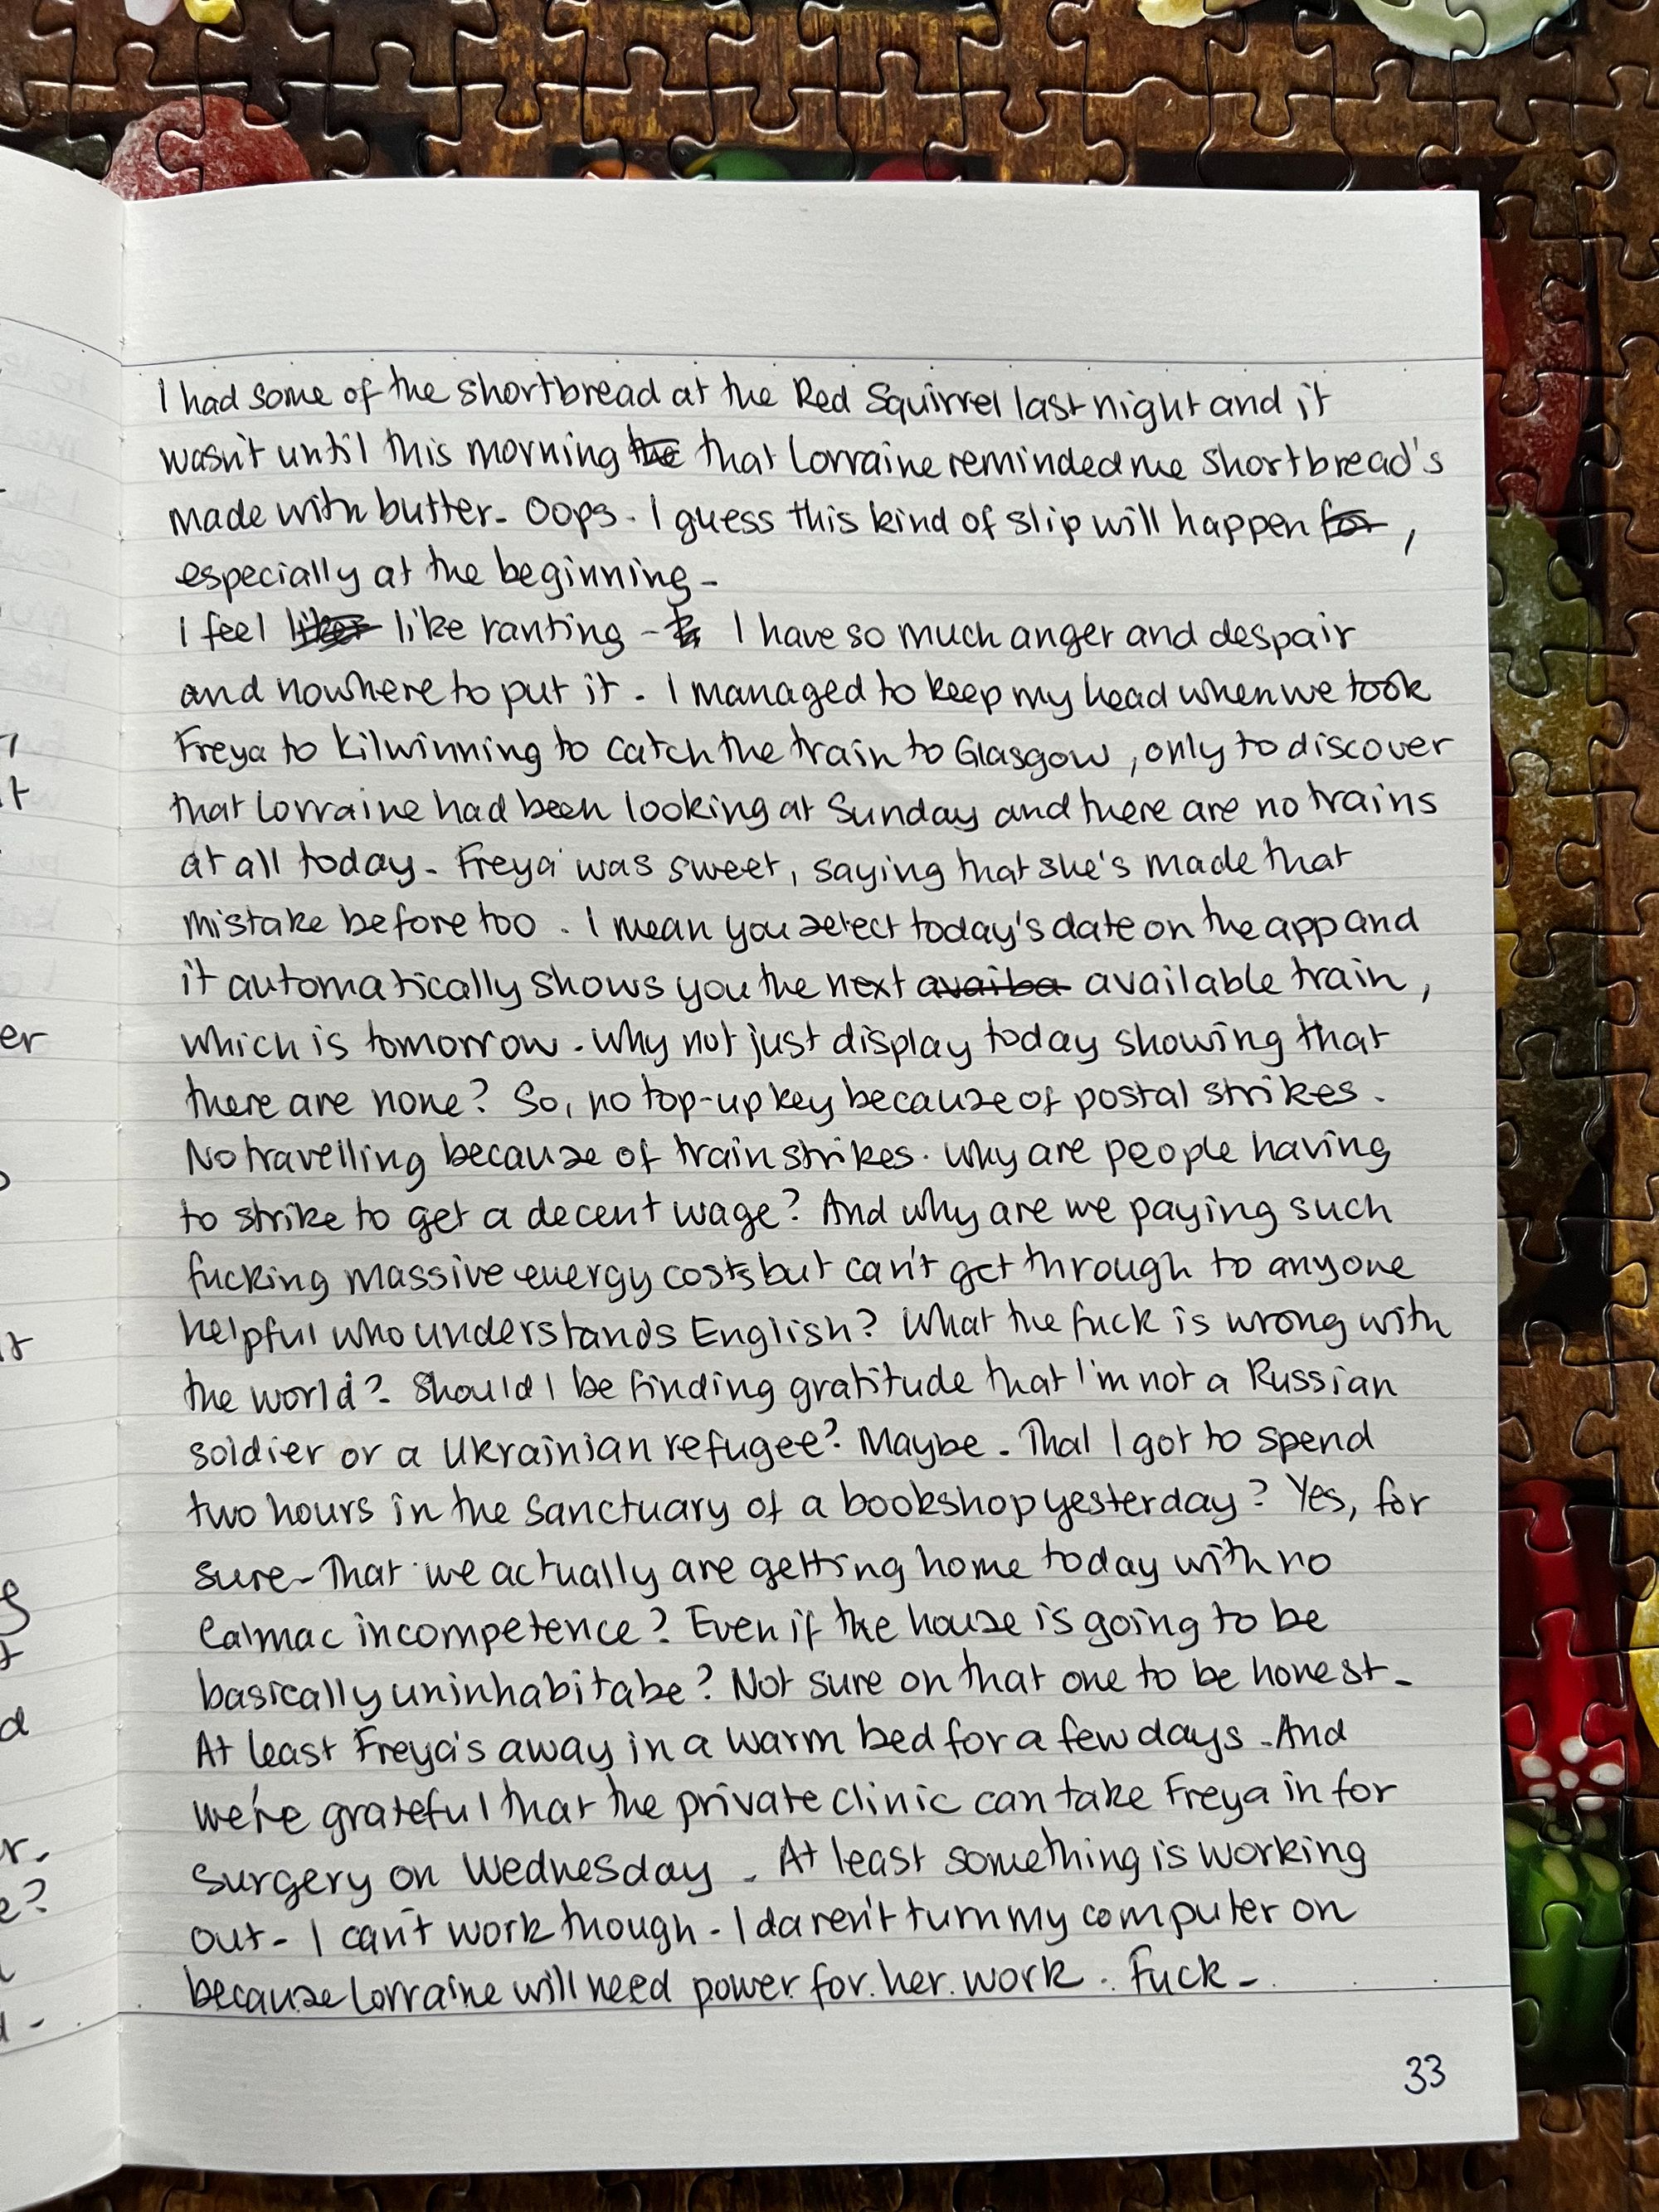 I had some of the shortbread at the Red Squirrel last night and it
wasn't until this morning the that Lorraine reminded me shortbread's
made with butter. Oops. I guess this kind of slip will happen for,
especially at the beginning.
I feel like ranting - I have so much anger and despair
and nowhere to put it. I managed to keep my head when we took
Freya to Kilwinning to catch the train to Glasgow, only to discover
that Lorraine had been looking at Sunday and there are no trains
at all today. Freya was sweet, saying that she's made that
mistake before too. I mean you select today's date on the app and
it automatically shows you the next avaiba available train,
which is tomorrow. Why not just display today showing that
there are none? So, no top-up key because of postal strikes.
No travelling because of train strikes. Why are people having
to strike to get a decent wage? And why are we paying such
fucking massive energy costs but can't get through to anyone
helpful who understands English? What the fuck is wrong with
the world? Should I be finding gratitude that I'm not a Russian
soldier or a Ukrainian refugee? Maybe. That I got to spend
two hours in the sanctuary of a bookshop yesterday? Yes, for
sure. That we actually are getting home today with no
Calmac incompetence? Even if the house is going to be
basically uninhabitabe? Not sure on that one to be honest.
At least Freya's away in a warm bed for a few days. And
we're grateful that the private clinic can take Freya in for
surgery on Wednesday. At least something is working
out. I can't work though. I daren't turn my computer on
because Lorraine will need power for her work. Fuck.
33